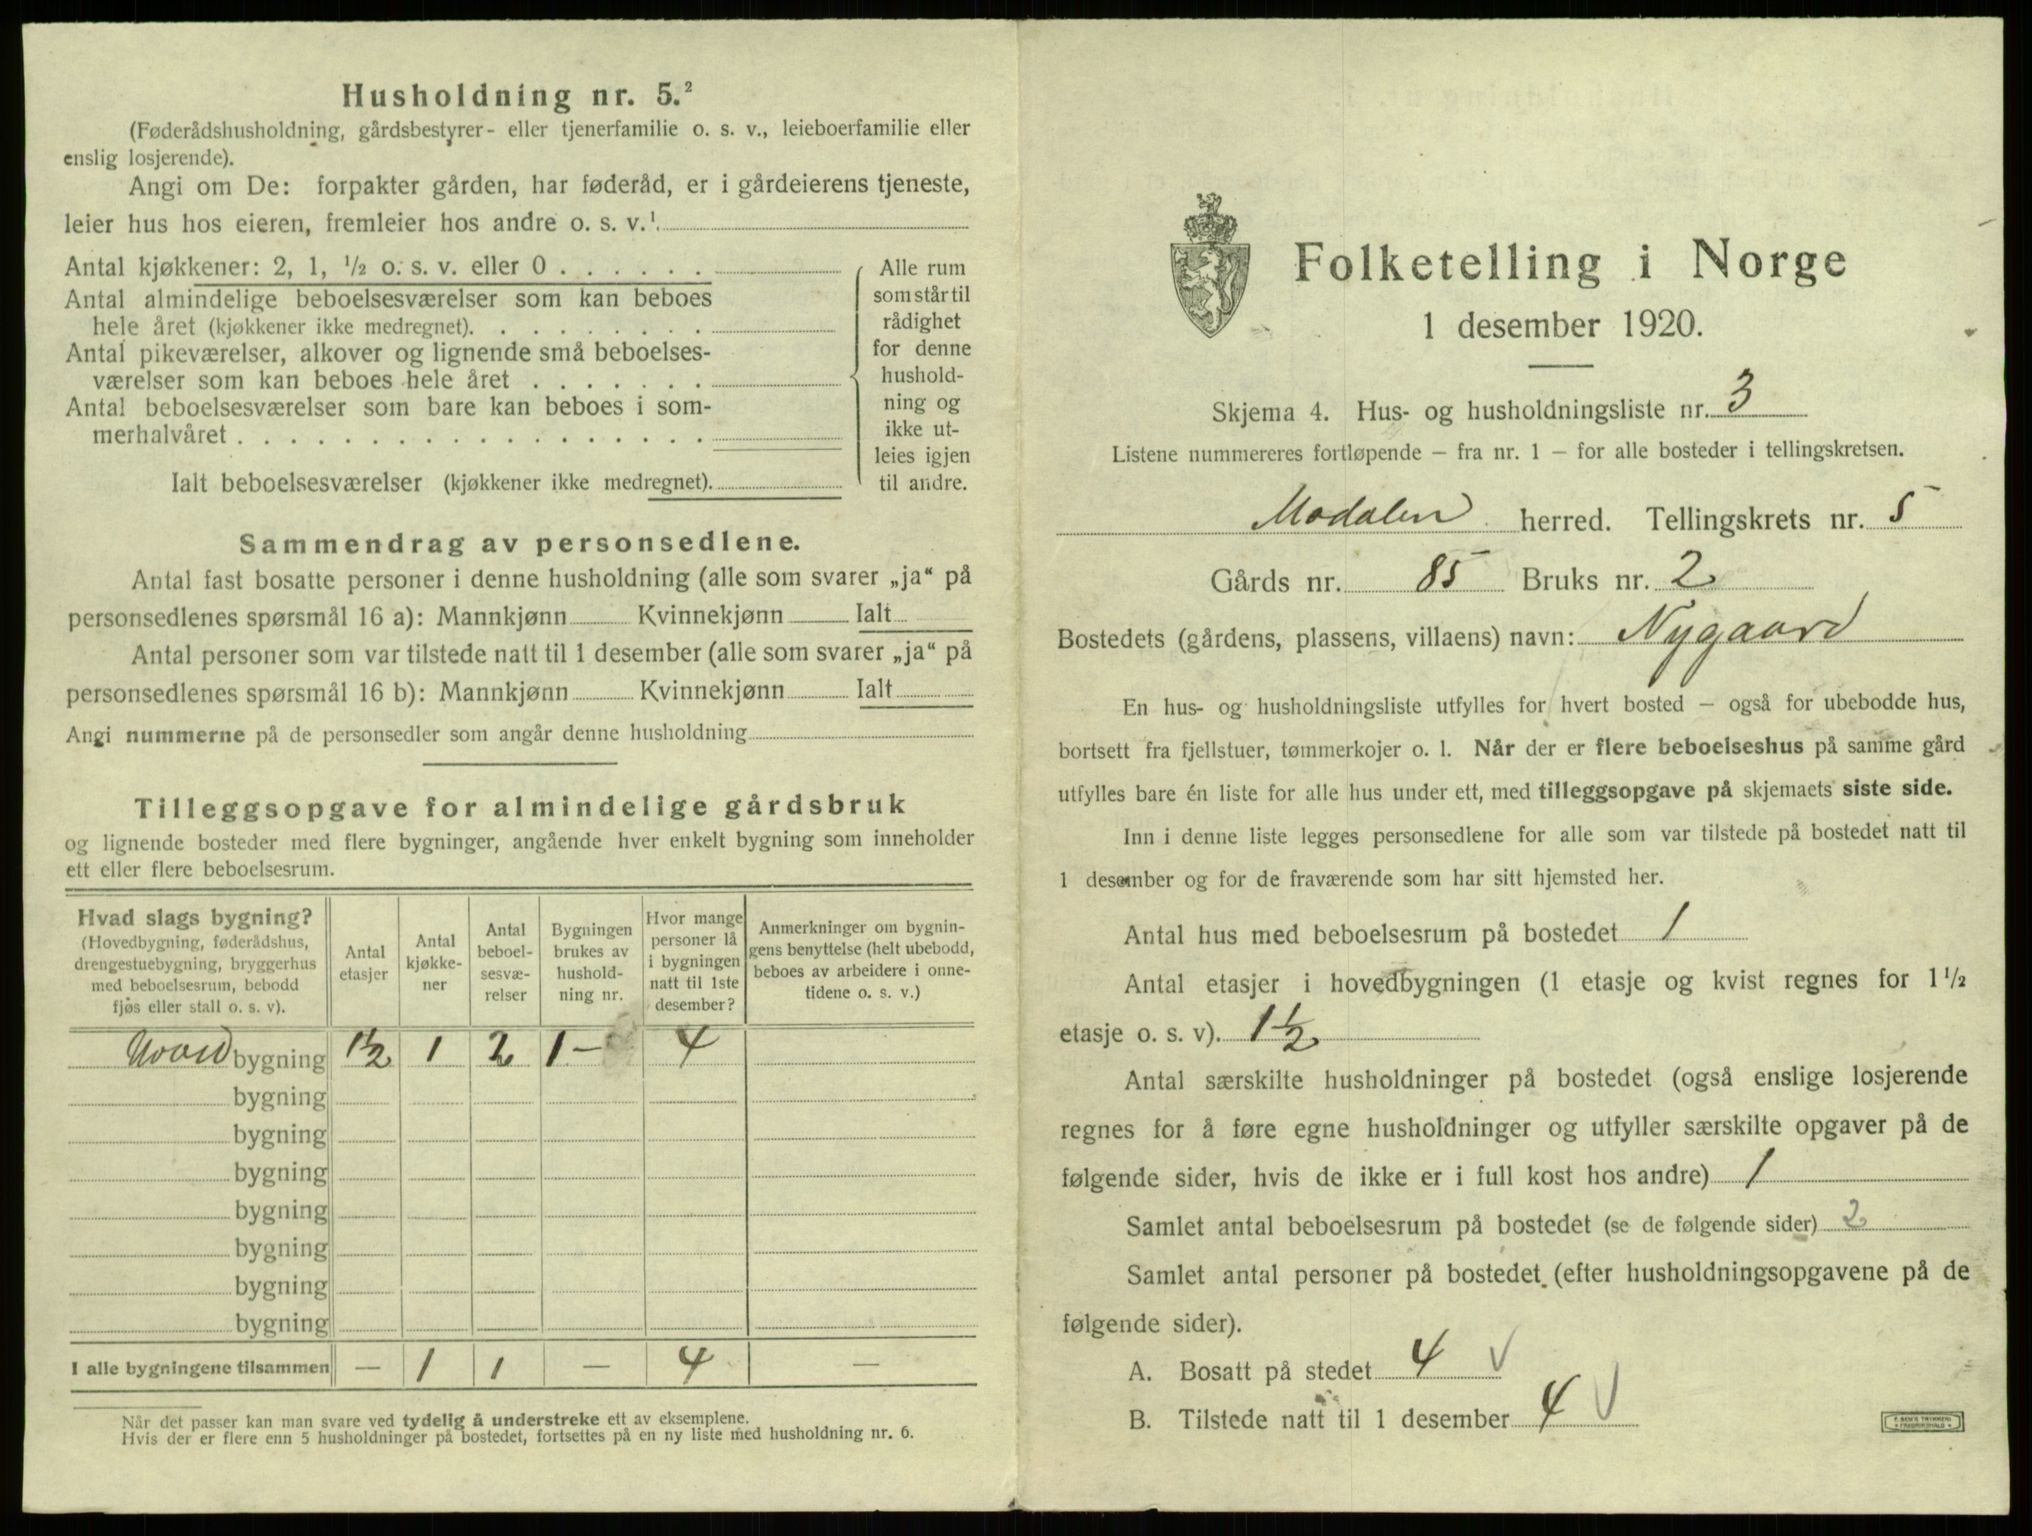 Husholdning nr. 5.²
(Føderådshusholdning, gårdsbestyrer- eller tjenerfamilie o. s. v., leieboerfamilie eller
enslig losjerende).
Angi om De: forpakter gården, har føderåd, er i gårdeierens tjeneste,
leier hus hos eieren, fremleier hos andre o. s. v.¹.
Antal kjøkkener: 2, 1, ½ o. s. v. eller 0
Antal almindelige beboelsesværelser som kan beboes
hele året (kjøkkener ikke medregnet).
Antal pikeværelser, alkover og lignende små beboelses-
værelser som kan beboes hele året
Antal beboelsesværelser som bare kan beboes i som-
merhalvåret
Ialt beboelsesværelser (kjøkkener ikke medregnet).
Alle rum
som står til
rådighet
for denne
hushold-
ning og
ikke ut-
leies igjen
til andre.
Sammendrag av personsedlene.
Antal fast bosatte personer i denne husholdning (alle som svarer „ja“ på
personsedlenes spørsmål 16 a): Mannkjønn Kvinnekjønn Ialt
Antal personer som var tilstede natt til 1 desember (alle som svarer „ja“ på
personsedlenes spørsmål 16 b): Mannkjønn Kvinnekjønn Ialt
Angi nummerne på de personsedler som angår denne husholdning
Tilleggsopgave for almindelige gårdsbruk
og lignende bosteder med flere bygninger, angående hver enkelt bygning som inneholder
ett eller flere beboelsesrum.
Hvad slags bygning?
(Hovedbygning, føderådshus,
drengestuebygning, bryggerhus
med beboelsesrum, bebodd
fjøs eller stall o. s. v).
Antal
etasjer
Antal
kjøkke-
ner
Antal
beboel-
sesvæ-
relser
Bygningen
brukes av
hushold-
ning nr.
Hvor mange
personer lå
i bygningen
natt til 1ste
desember?
Anmerkninger om bygnin-
gens benyttelse (helt ubebodd,
beboes av arbeidere i onne-
tidene o. s. v.)
bygning 1½ 1 2 1 – 4
bygning
bygning
bygning
bygning
bygning
bygning
bygning
I alle bygningene tilsammen — 1 1 — 4 —
Når det passer kan man svare ved tydelig å understreke ett av eksemplene.
Hvis der er flere enn 5 husholdninger på bostedet, fortsettes på en ny liste med husholdning nr. 6.
Folketelling i Norge
1 desember 1920.
Skjema 4. Hus- og husholdningsliste nr. 3
Listene nummereres fortløpende – fra nr. 1 – for alle bosteder i tellingskretsen.
Modalen herred. Tellingskrets nr. 5
Gårds nr. 85 Bruks nr. 2
Bostedets (gårdens, plassens, villaens) navn: Nygaard
En hus- og husholdningsliste utfylles for hvert bosted – også for ubebodde hus,
bortsett fra fjellstuer, tømmerkojer o. l. Når der er flere beboelseshus på samme gård
utfylles bare én liste for alle hus under ett, med tilleggsopgave på skjemaets siste side.
Inn i denne liste legges personsedlene for alle som var tilstede på bostedet natt til
1 desember og for de fraværende som har sitt hjemsted her.
Antal hus med beboelsesrum på bostedet 1
Antal etasjer i hovedbygningen (1 etasje og kvist regnes for 1½
etasje o. s. v). 1½
Antal særskilte husholdninger på bostedet (også enslige losjerende
regnes for å føre egne husholdninger og utfyller særskilte opgaver på de
følgende sider, hvis de ikke er i full kost hos andre) 1
Samlet antal beboelsesrum på bostedet (se de følgende sider) 2
Samlet antal personer på bostedet (efter husholdningsopgavene på de
følgende sider).
A. Bosatt på stedet 4 √
B. Tilstede natt til 1 desember 4 √